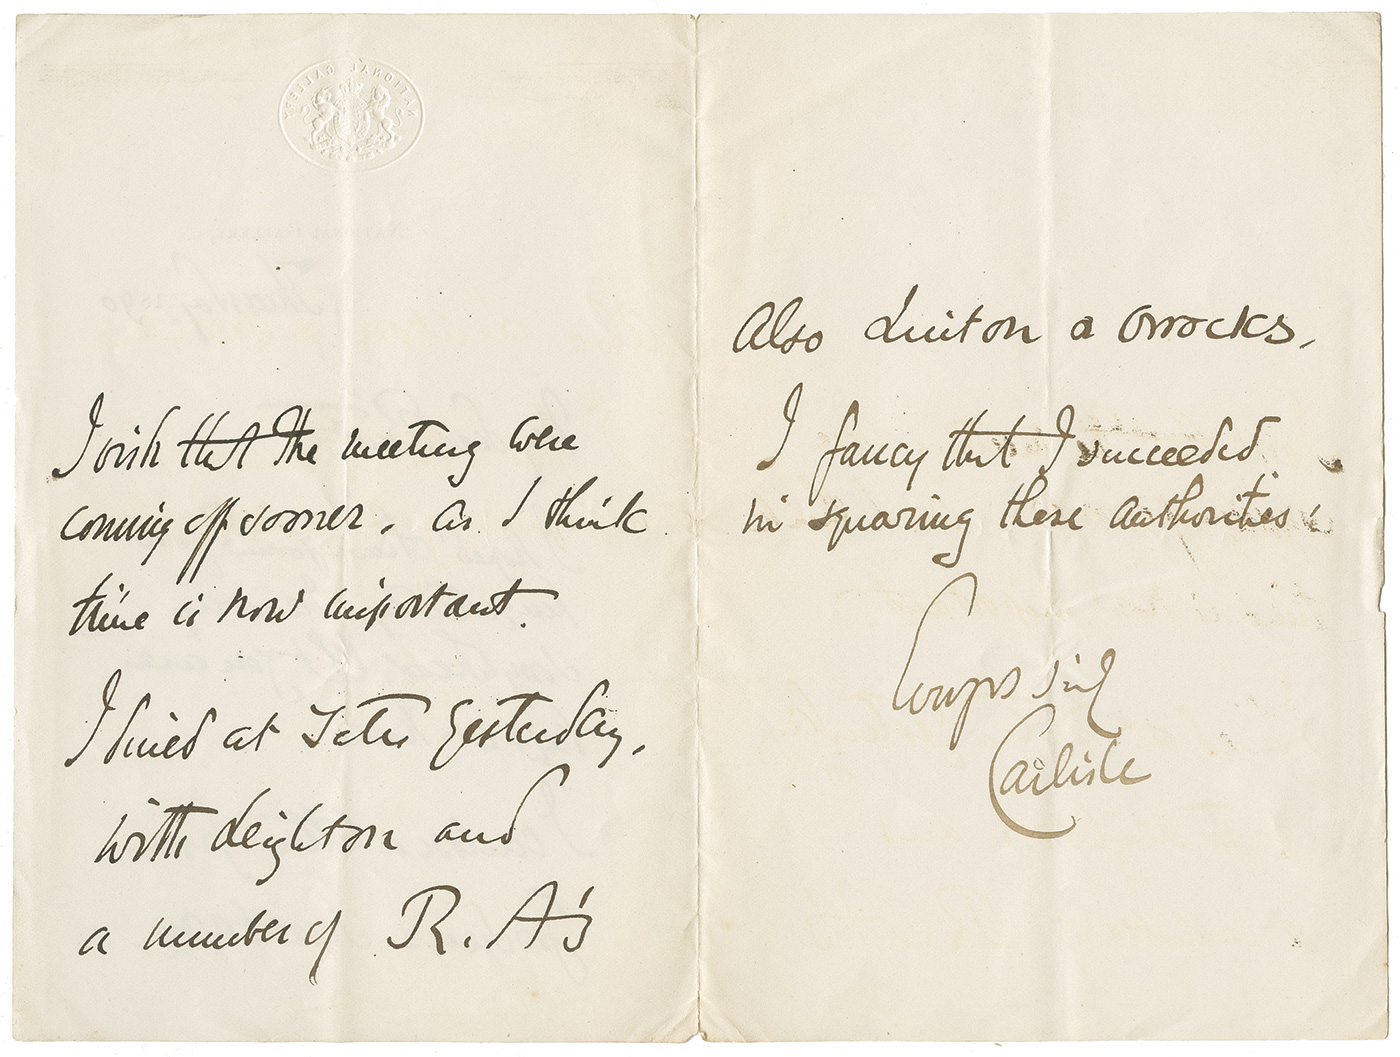 NATIONAL GALLERY
I wish that the meeting were
coming off sooner. as I think
time is now important.
I dined at Tates yesterday,
with Leighton and
a number of R. A's
Also Linton & Orrocks.
I fancy that I succeeded
in squaring these authorities.
Carlisle